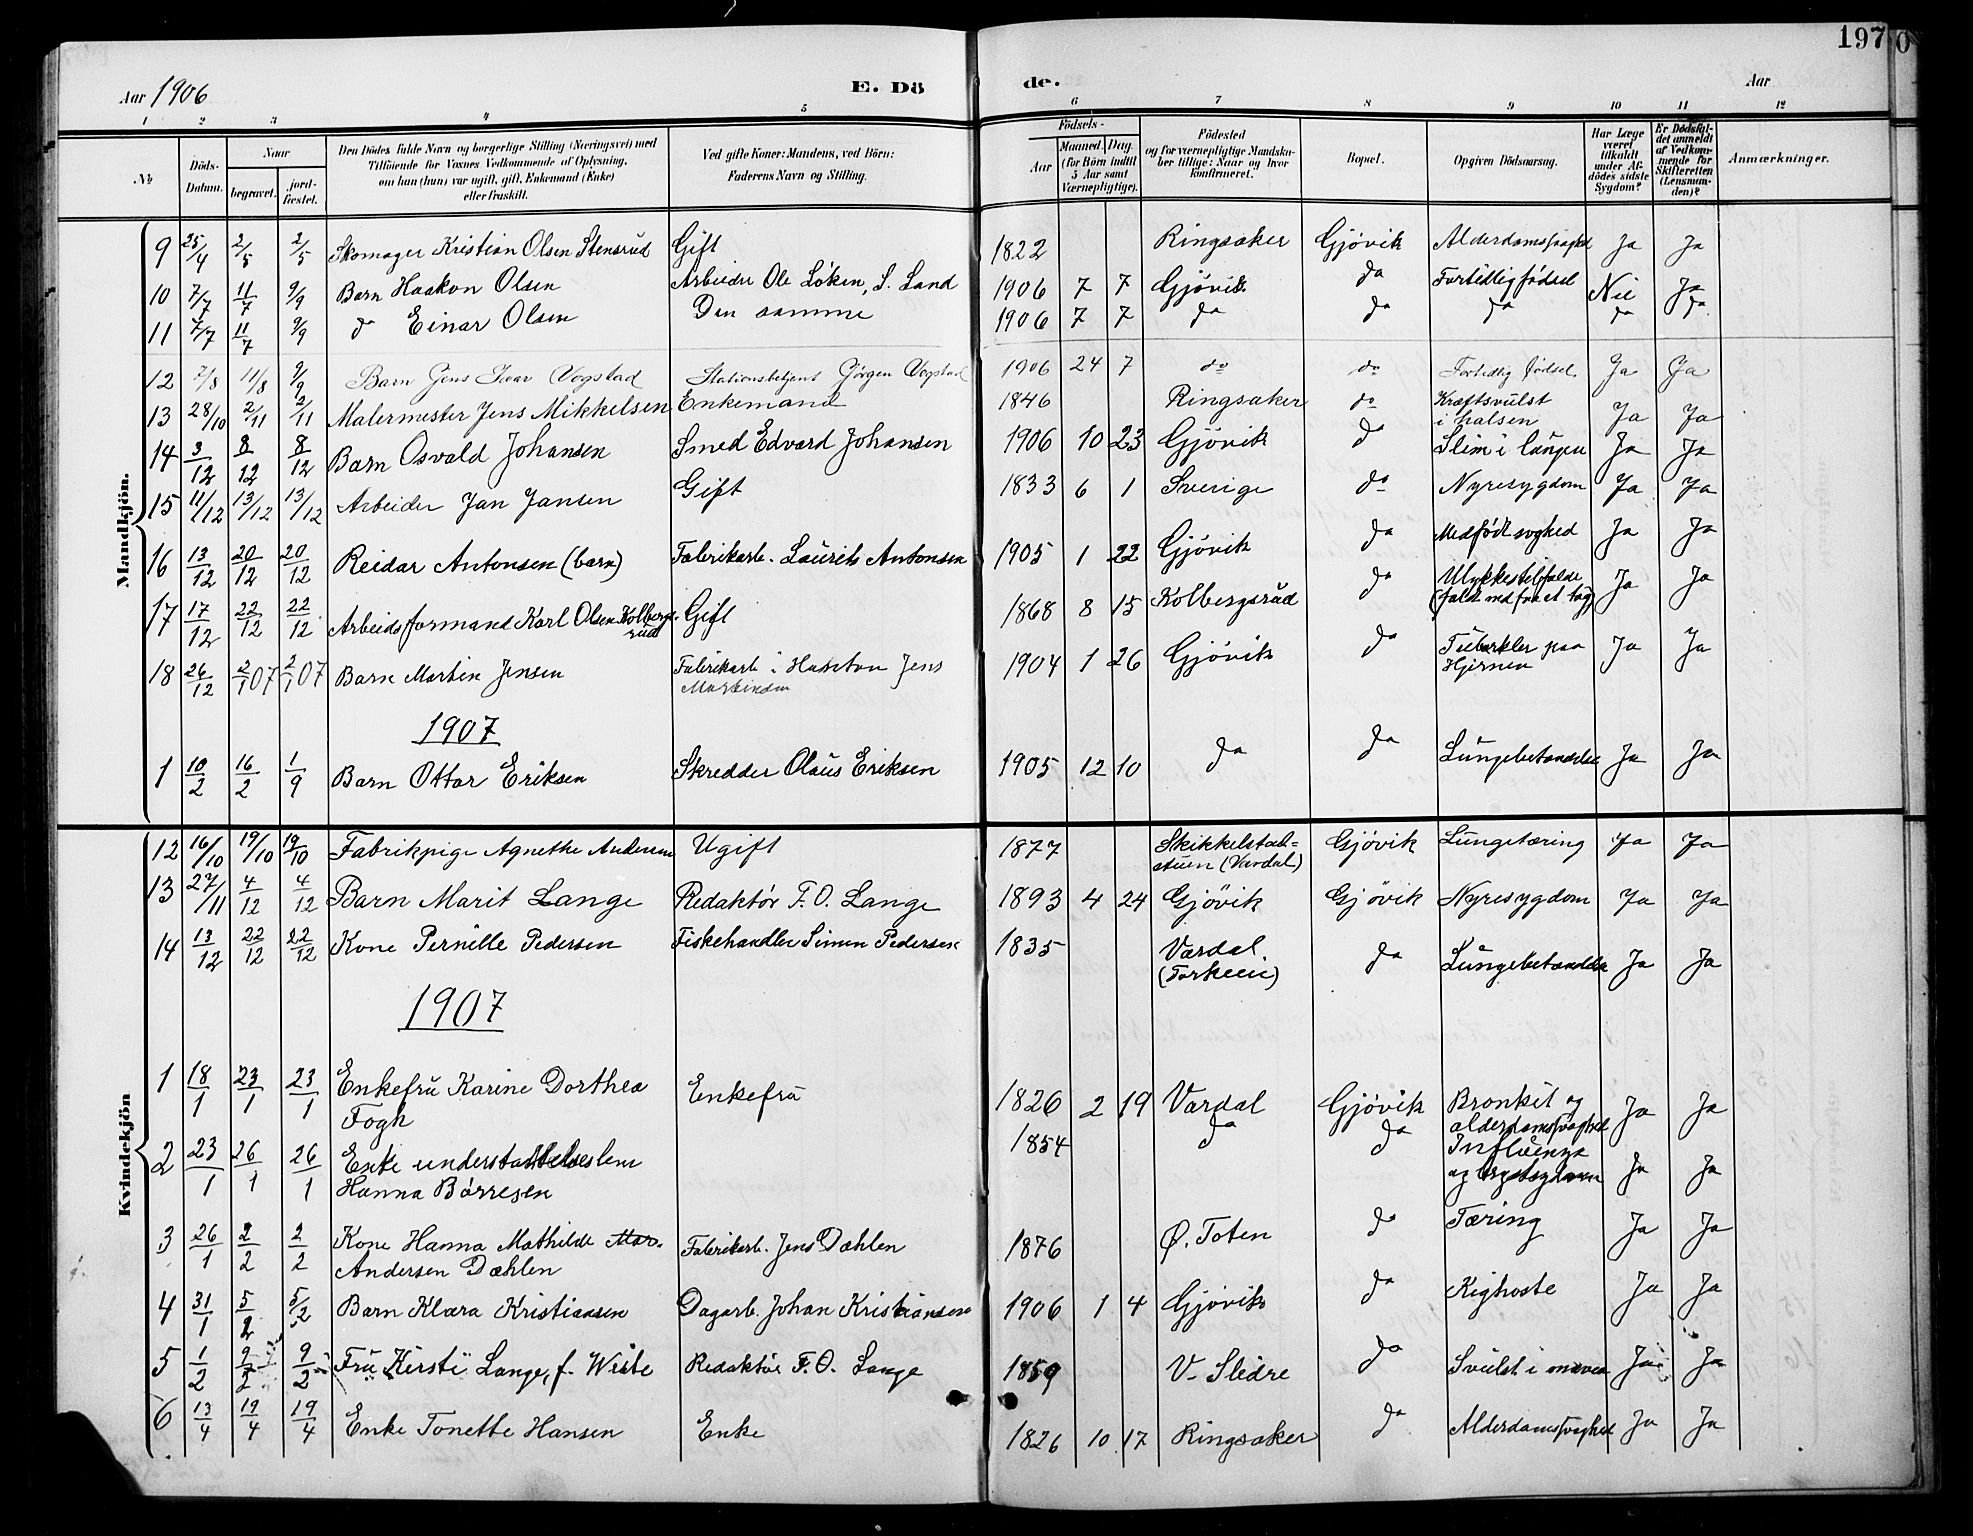 197
0
Aar 1906 E. Dö de. Aar
1 2 3 4 5 6 7 8 9 10 11 12
№
Döds-Datum.
Naar
begravet.
jord-fæstet.
Den Dödes fulde Navn og borgerlige Stilling (Næringsvei) med
Tilföiende for Voxnes Vedkommende af Oplysning,
om han (hun) var ugift, gift, Enkemand (Enke)
eller fraskilt.
Ved gifte Koner: Mandens, ved Börn:
Faderens Navn og Stilling.
Födsels-
Aar
Maaned. Dag.
(for Börn indtil
5 Aar samt
Værnepligtige).
Födested
og for værnepligtige Mandska-
ber tillige: Naar og hvor
konfirmeret.
Bopæl.
Opgiven Dödsaarsag.
Har Læge
været
tilkaldt
under Af-
dödes sidste
Sygdom?
Er Dödsfal-
det anmeldt
af Vedkom-
mende for
Skifteretten
(Lensman-
den)?
Anmærkninger.
Mandkjön.
9 25/4 2/5 2/5 Skomager Kristian Olsen Stensrud Gift 1822 Ringsaker Gjövik Alderdomssvaghed Ja Ja
10 7/7 11/7 9/9 Barn Haakon Olsen Arbeider Ole Löken, S. Land 1906 7 7 Gjövik do Fortidlig födsel Nei Ja
11 7/7 11/7 9/9 do Einar Olsen Den samme 1906 7 7 do do do do do
12 7/8 11/8 9/9 Barn Jens Ivar Vogstad Stationsbetjent Jörgen Vogstad 1906 24 7 do do Fortidlig födsel. Ja Ja
13 28/10 2/11 2/11 Malermester Jens Mikkelsen Enkemand 1846 Ringsaker do Kræftsvulst
i halsen Ja Ja
14 3/12 8/12 8/12 Barn Osvald Johansen Smed Edvard Johansen 1906 10 23 Gjövik do Slim i lungen Ja Ja
15 11/12 13/12 13/12 Arbeider Jan Jansen Gift 1833 6 1 Sverige do Nyresygdom Ja Ja
16 13/12 20/12 20/12 Reidar Antonsen (barn) Fabrikarb. Laurits Antonsen 1905 1 22 Gjövik do Medfödt svaghed Ja Ja
17 17/12 22/12 22/12 Arbeidsformand Karl Olsen Kolbergs-
rud Gift 1868 8 15 Kolbergsrud do Ulykkestilfælde
(fald ned fra et tag) Ja Ja
18 26/12 2/1 07 2/1 07 Barn Martin Jensen Fabrikarb. i Hunton Jens
Martinsen 1904 1 26 Gjövik do Tuberkler paa
Hjernen Ja Ja
1907
1 10/2 16/2 1/9 Barn Ottar Eriksen Skredder Olaus Eriksen 1905 12 10 do do Lungebetændelse Ja Ja
Kvindekjön
12 16/10 19/10 19/10 Fabrikpige Agnethe Andersen Ugift 1877 Skikkelstad-
stuen (Vardal) Gjövik Lungetæring Ja Ja
13 27/11 4/12 4/12 Barn Marit Lange Redaktör F. O. Lange 1893 4 24 Gjövik Gjövik Nyresygdom Ja Ja
14 13/12 22/12 22/12 Kone Pernille Pedersen Fiskehandler Simen Pedersen 1835 Vardal. do Lungebetændelse Ja Ja
1907
1 18/1 23/1 23/1 Enkefru Karine Dorthea
Fogh Enkefru 1826 2 19 Vardal Gjövik Bronkit og
alderdomssvaghed Ja Ja
2 23/1 26/1 26/1 Enke understøttelseslem
Hanna Börresen 1854 do do Influenza
og brystsygdom Ja Ja
3 26/1 2/2 2/2 Kone Hanna Mathilde Mar.
Andersen Dæhlen Fabrikarb. Jens Dæhlen 1876 Ø. Toten do Tæring Ja Ja
4 31/1 5/2 5/2 Barn Klara Kristiansen Dagarb. Johan Kristiansen 1906 1 4 Gjövik do Kighoste Ja Ja
5 1/2 9/2 9/2 Fru Kirsti Lange, f. Redaktör F. O. Lange 1859 V. Slidre do Svulst i maven Ja Ja
6 13/4 19/4 19/4 Enke Tonette Hansen Enke 1826 10 17 Ringsaker do Alderdomssvaghed Ja Ja